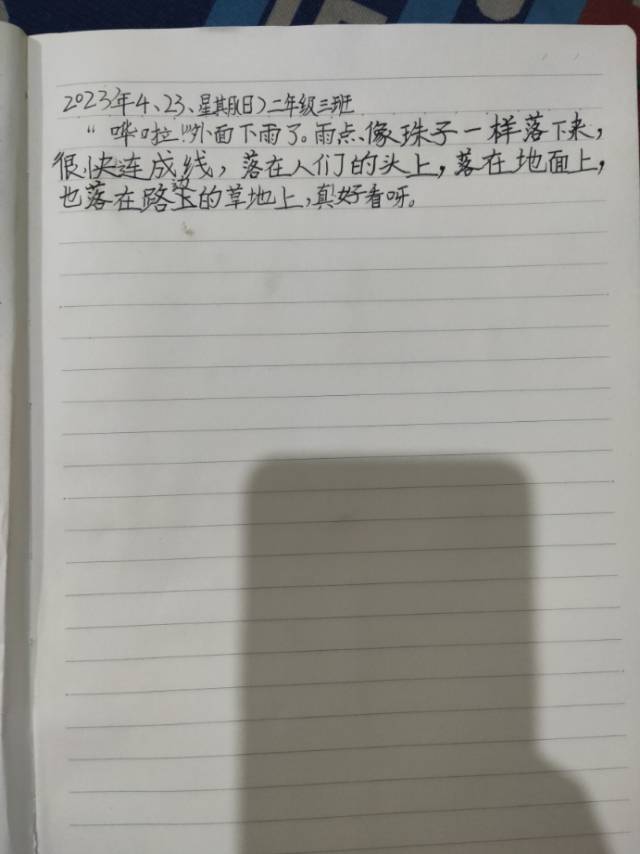 2023年4、23、星期(日)二年级三班
“哗啦”外面下雨了。雨点、像珠子一样落下来,
很快连成线,落在人们的头上,落在地面上,
也落在路边的草地上,真好看呀。